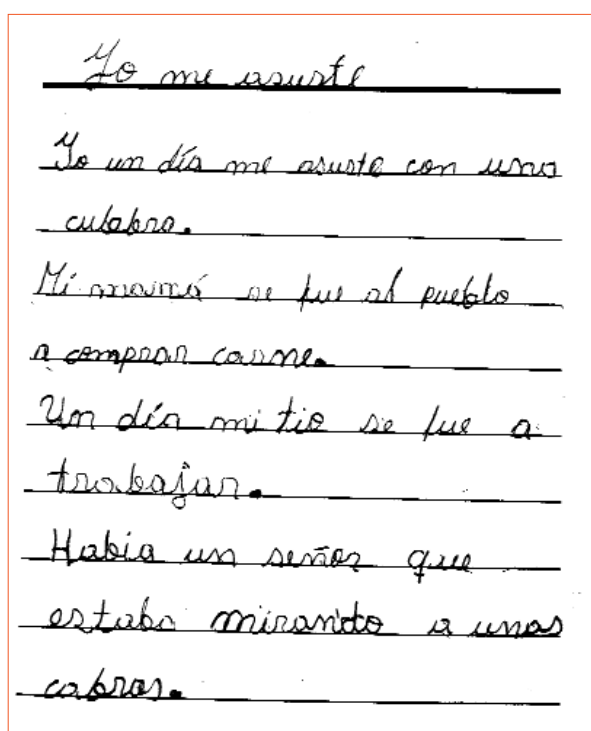 Yo me asuste
Yo un día me asuste con una
culabra.
Mi mamá se fue al pueblo
a comprar carne.
Un día mi tio se fue a
trabajar.
Habia un señor que
estaba mirando a unas
cabras.